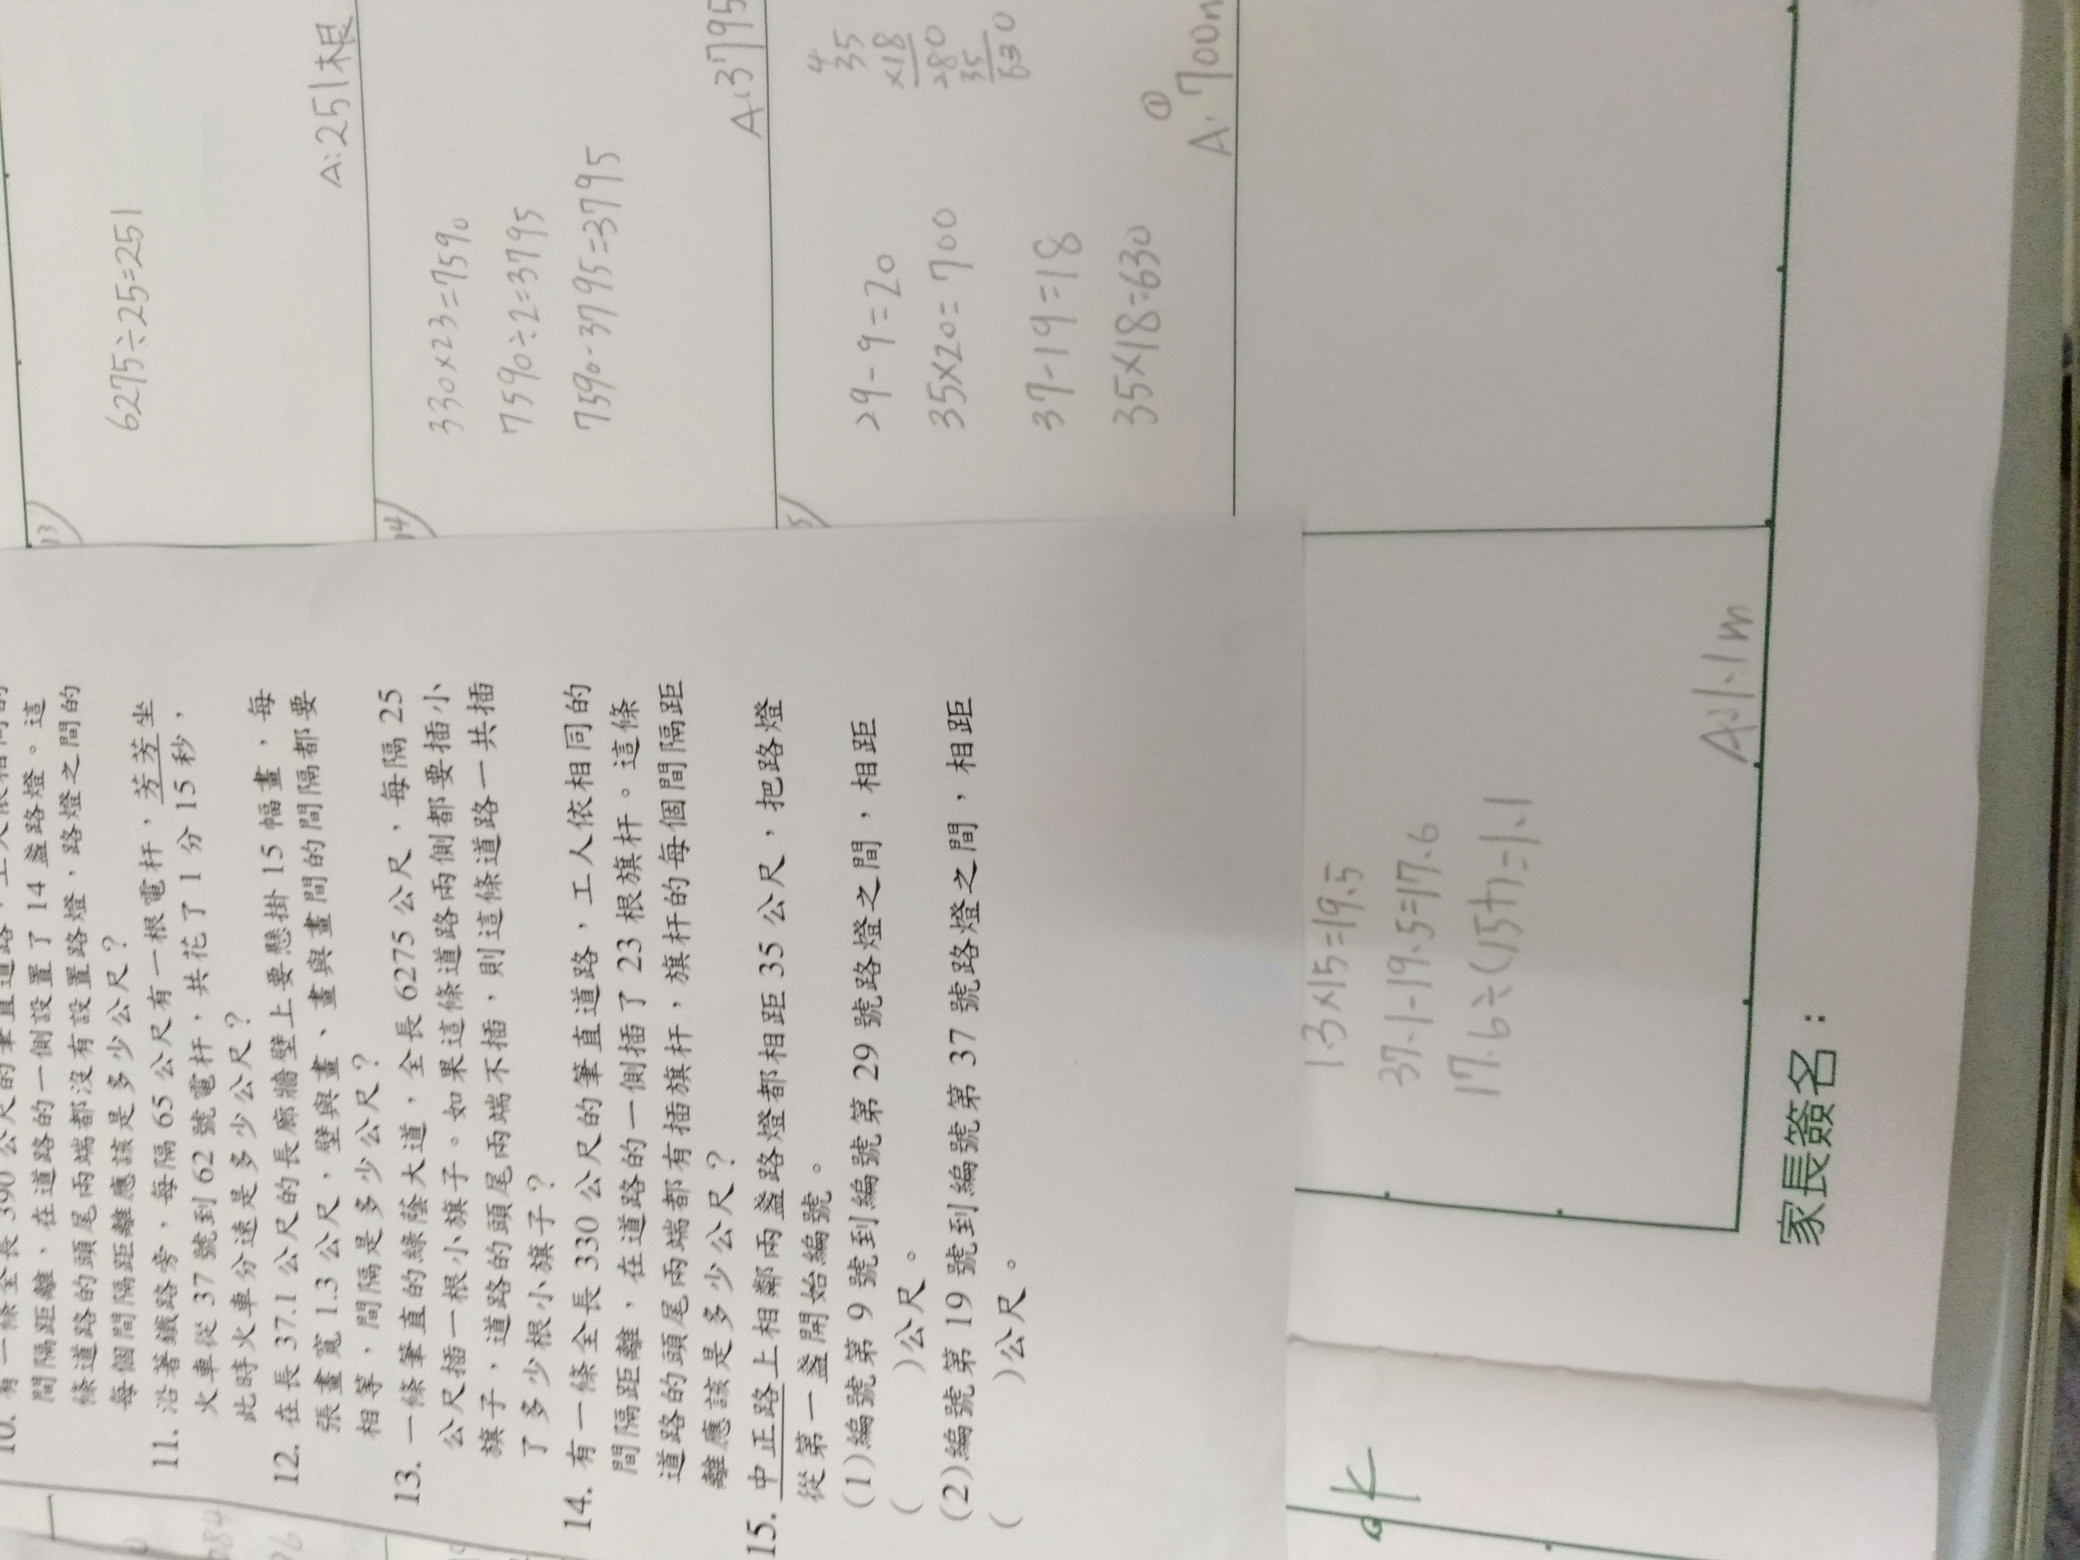 10. 有一條全長 390 公尺的筆直道路，工人依相同的
間隔距離，在道路的一側設置了 14 盞路燈。這
條道路的頭尾兩端都沒有設置路燈，路燈之間的
每個間隔距離應該是多少公尺？
11. 沿著鐵路旁，每隔 65 公尺有一根電杆，芳芳坐
火車從 37 號到 62 號電杆，共花了 1 分 15 秒，
此時火車分速是多少公尺？
12. 在長 37.1 公尺的長廊牆壁上要懸掛 15 幅畫，每
張畫寬 1.3 公尺，壁與畫、畫與畫間的間隔都要
相等，間隔是多少公尺？
13. 一條筆直的綠蔭大道，全長 6275 公尺，每隔 25
公尺插一根小旗子。如果這條道路兩側都要插小
旗子，道路的頭尾兩端不插，則這條道路一共插
了多少根小旗子？
14. 有一條全長 330 公尺的筆直道路，工人依相同的
間隔距離，在道路的一側插了 23 根旗杆。這條
道路的頭尾兩端都有插旗杆，旗杆的每個間隔距
離應該是多少公尺？
15. 中正路上相鄰兩盞路燈都相距 35 公尺，把路燈
從第一盞開始編號。
(1)編號第 9 號到編號第 29 號路燈之間，相距
( )公尺。
(2)編號第 19 號到編號第 37 號路燈之間，相距
( )公尺。
13)
6275÷25=251
A:251根
14)
330×23=7590
7590÷2=3795
7590-3795=3795
A:3795
5)
29-9=20
35×20=700
37-19=18
35×18=630
4
35
×18
280
35
630
①
A:700m
1.3×15=19.5
37.1-19.5=17.6
17.6÷(15+1)=1.1
A:1.1m
家長簽名：